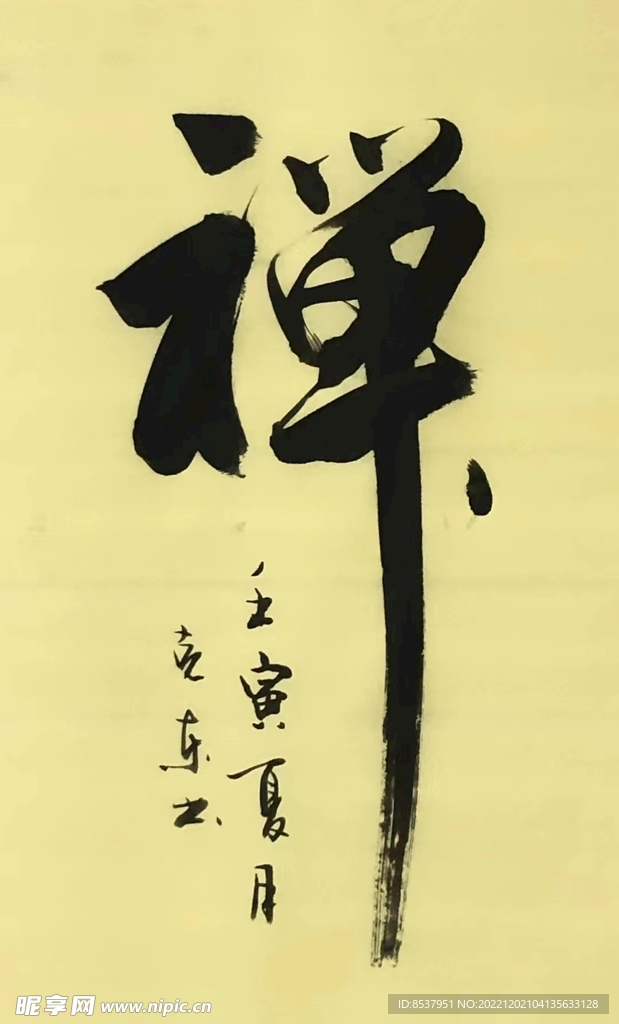 禅
壬寅夏月
克东书
昵享网 www.nipic.cn
ID:8537951 NO:20221202104135633128